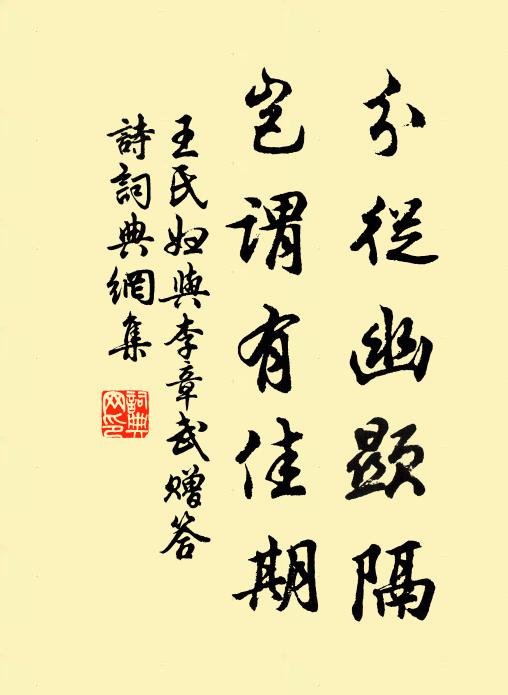 分從幽顯隔
豈謂有佳期
王氏婦與李章武贈答
詩詞典網集
詞典
网印